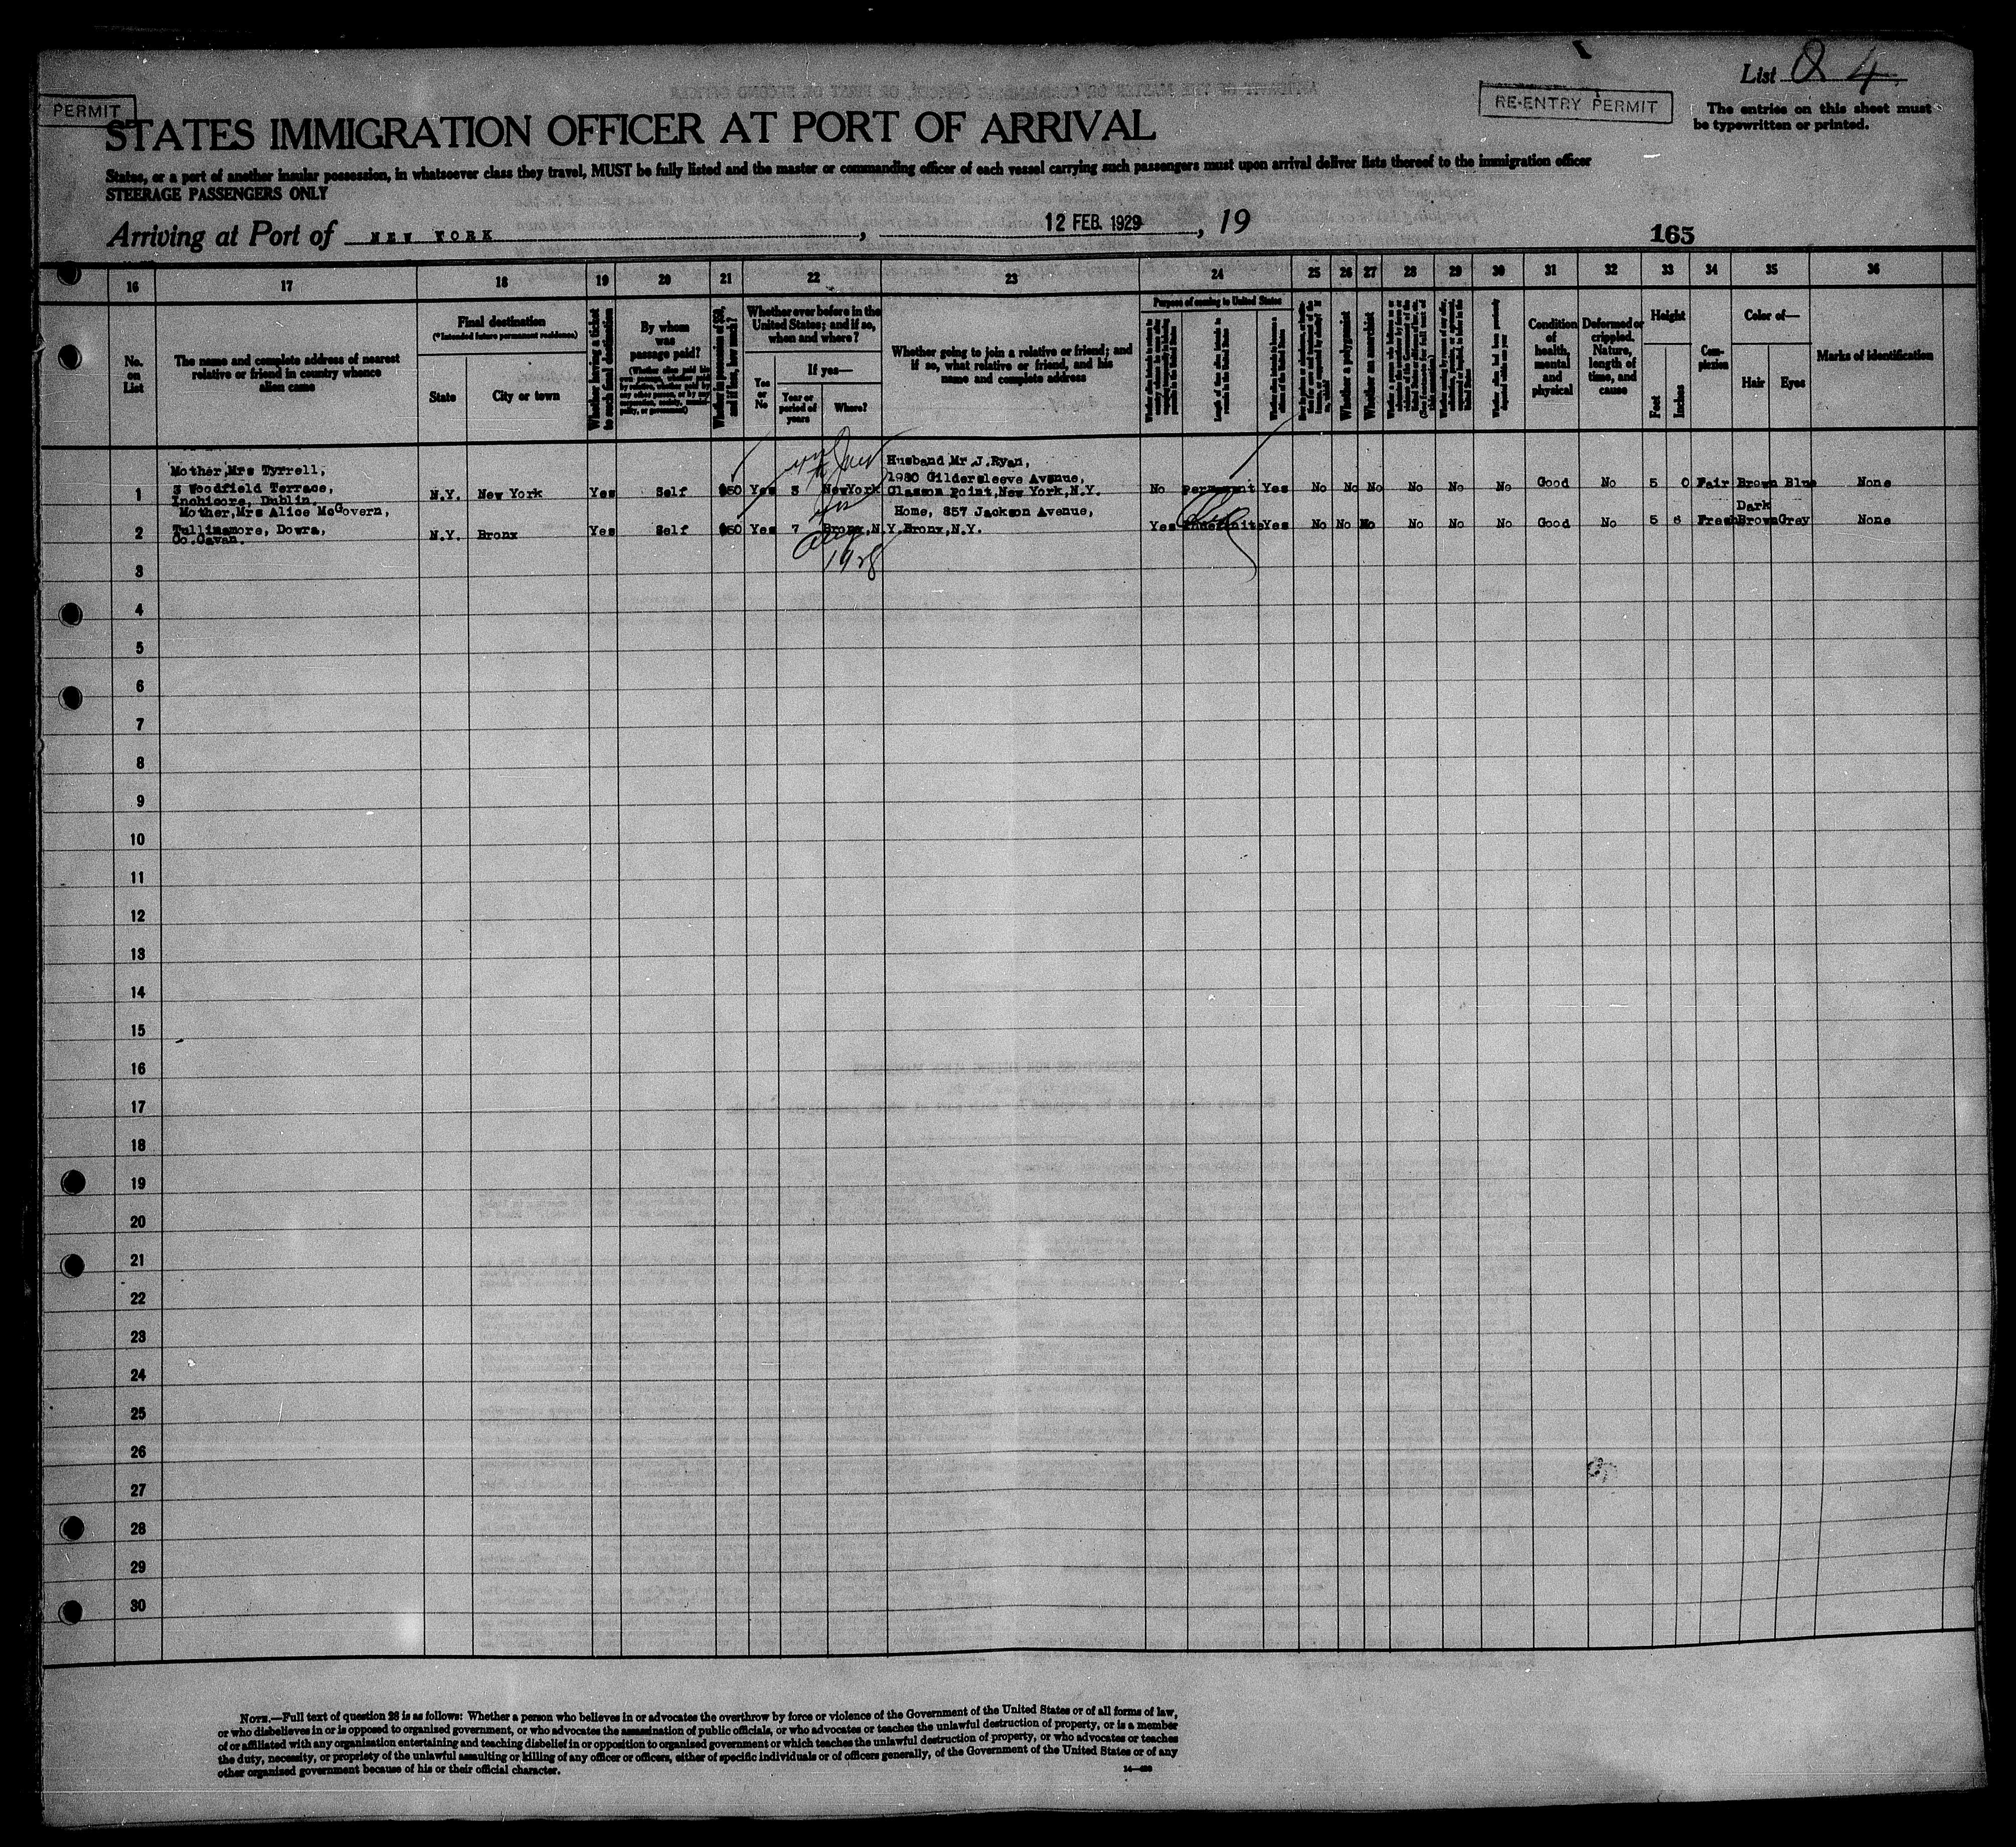 List 2 4
PERMIT
RE-ENTRY PERMIT
The entries on this sheet must
be typewritten or printed.
STATES IMMIGRATION OFFICER AT PORT OF ARRIVAL
States, or a port of another insular possession, in whatsoever class they travel, MUST be fully listed and the master or commanding officer of each vessel carrying such passengers must upon arrival deliver lists thereof to the immigration officer
STEERAGE PASSENGERS ONLY
Arriving at Port of NEW YORK, 12 FEB. 1929, 19
165
16 17 18 19 20 21 22 23 24 25 26 27 28 29 30 31 32 33 34 35 36
No. on List
The name and complete address of nearest
relative or friend in country whence
alien came
Final destination
(*Intended future permanent residence)
State
City or town
Whether having a ticket
to such final destination
By whom
was
passage paid?
Whether in possession of $50,
and if less, how much?
Whether ever before in the
United States; and if so,
when and where?
Yes or No
If yes—
Year or period of years
Where?
Whether going to join a relative or friend; and
if so, what relative or friend, and his
name and complete address
Purpose of coming to United States
Whether a polygamist
Whether an anarchist
Condition of health, mental and physical
Deformed or crippled. Nature, length of time, and cause
Height
Feet
Inches
Com-plexion
Color of—
Hair
Eyes
Marks of identification
Mother,Mrs Tyrrell,
3 Woodfield Terrace,
Inchicore, Dublin
1 N.Y. New York Yes Self $50 Yes 3 NewYork
Husband Mr J.Ryan,
1980 Gildersleeve Avenue,
Classon Point,New York,N.Y.
No Permanent Yes No No No No No No Good No 5 0 Fair Brown Blue None
Mother,Mrs Alice McGovern,
Tullinamore, Dowra,
Co.Cavan.
2 N.Y. Bronx Yes Self $50 Yes 7 Bronx,N.Y.
Home, 857 Jackson Avenue,
Bronx,N.Y.
Yes Indefinite Yes No No No No No No Good No 5 6 Fresh Dark Brown Grey None
1928
3
4
5
6
7
8
9
10
11
12
13
14
15
16
17
18
19
20
21
22
23
24
25
26
27
28
29
30
NOTE.—Full text of question 28 is as follows: Whether a person who believes in or advocates the overthrow by force or violence of the Government of the United States or of all forms of law,
or who disbelieves in or is opposed to organized government, or who advocates the assassination of public officials, or who advocates or teaches the unlawful destruction of property, or is a member
of or affiliated with any organization entertaining and teaching disbelief in or opposition to organized government or which teaches the unlawful destruction of property, or who advocates or teaches
the duty, necessity, or propriety of the unlawful assaulting or killing of any officer or officers, either of specific individuals or of officers generally, of the Government of the United States or of any
other organized government because of his or their official character.